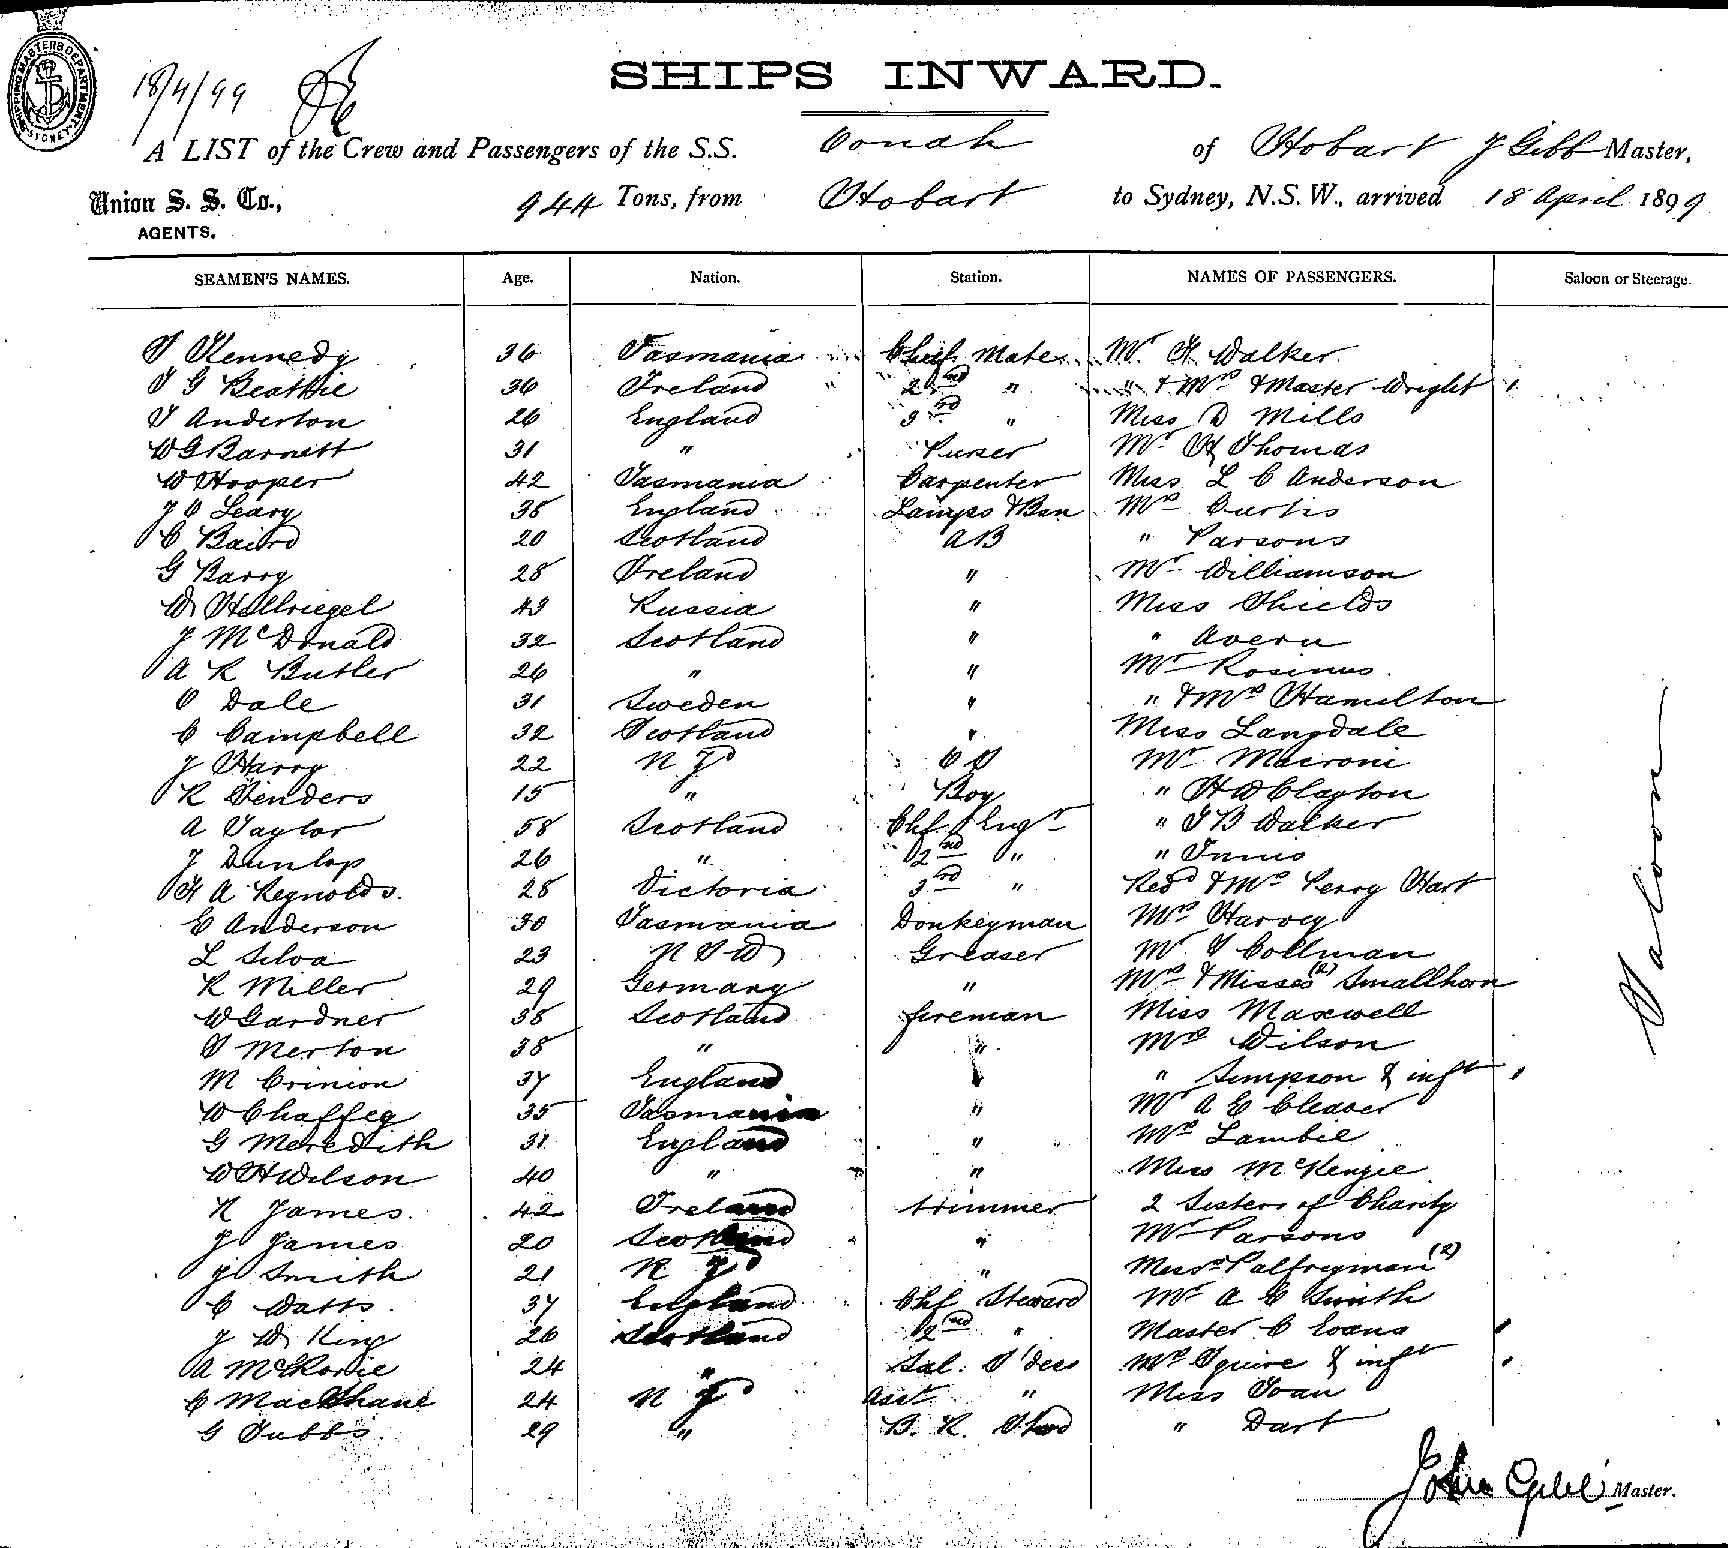 SHIPPING MASTERS DEPARTMENT SYDNEY
18/4/99
SHIPS INWARD.
A LIST of the Crew and Passengers of the S.S. Oonah of Hobart J Gibb Master,
Union S. S. Co., 944 Tons, from Hobart to Sydney, N.S.W., arrived 18 April 1899
AGENTS.
SEAMEN'S NAMES. Age. Nation. Station. NAMES OF PASSENGERS. Saloon or Steerage.
T Kennedy 36 Tasmania Chief Mate Mr H Walker
J G Beattie 36 Ireland 2nd " " & Mrs & Master Wright
T Anderton 26 England 3rd " Miss D Mills
W G Barnett 31 " Purser Mr H Thomas
W Hooper 42 Tasmania Carpenter Miss L C Anderson
J O Leary 38 England Lamps & Bsn Mrs Curtis
C Baird 20 Scotland AB " Parsons
G Barry 28 Ireland " Mr Williamson
W Hellriegel 43 Russia " Miss Shields
J McDonald 32 Scotland " " Avern
A R Butler 26 " " Mr Rosinus
O Dale 31 Sweden " " & Mrs Hamilton
C Campbell 32 Scotland " Miss Langdale
J Harry 22 N Zd O S Mr Macroni
R Fenders 15 " Boy " H W Clayton
A Taylor 58 Scotland Chf Engr " T B Walker
J Dunlop 26 " 2nd " " Innis
H A Reynolds. 28 Victoria 3rd " Revd & Mrs Perry Hart
E Anderson 30 Tasmania Donkeyman Mrs Harvey
L Silva 23 N S W Greaser Mr T Collman
R Miller 29 Germany " Mrs & Misses (2) Smallhorn
W Gardner 38 Scotland fireman Miss Maxwell
T Merton 38 " " Mrs Wilson
M Crinion 37 England " " Simpson & inft
W Chaffey 35 Tasmania " Mr A E Cleaver
G Meredith 31 England " Mrs Lambie
W H Wilson 40 " " Miss McKenzie
R James. 42 Ireland trimmer 2 Sisters of Charity
J James 20 Scotland " Mr Parsons
J Smith 21 N Zd " Messrs Palfreyman (2)
C Watts. 37 England Chf Steward Mr A E Smith
J W King 26 Scotland 2nd " Master C Evans
A McRorie 24 " Sal: S'dess Mrs Squire & inft
C MacShane 24 N Zd Asst " Miss Toan
G Tubbs. 29 " B. R. Stwd " Dart
Saloon
John Gibb Master.